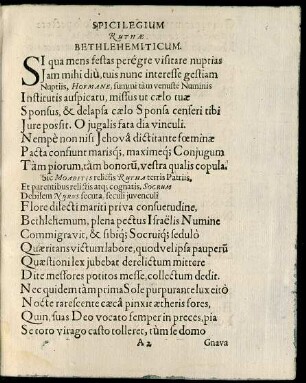 SPICILEGIUM
RUTHÆ
BETHLEHEMITICUM.
SI qua mens festas perêgre visitare nuptias
Jam mihi diû, tuis nunc interesse gestiam
Nuptiis, HOFMANE, summi tàm venuste Numinis
Institutis auspicatu, missus ut cælo tuæ
Sponsus, & delapsa cælo Sponsa censeri tibi
Jure possit. O jugalis fata dia vinculi.
Nempè non nisi Jehovâ dictitante fœminæ
Pacta consunt marisq́;, maximeq́; Conjugum
Tàm piorum, tàm bonorũ, vestra qualis copula.
Sic MOABITIS relictis RUTHA terris Patriis,
Et parentibus relictis atq; cognatis, SOCRUM
Debilem NURUS secuta, seculi juvenculi
Flore dilecti mariti priva consuetudine,
Bethlehemum, plena pectus Israëlis Numine
Commigravit, & sibiq́; Socruiq́; sedulò
Quæritans victum labore, quod vel ipsa pauperũ
Quæstioni lex jubebat derelictum mittere
Dite messores potitos messe, collectum dedit.
Nec quidem tàm prima Sole purpurante lux eitò
Nocte rarescente cæcâ pinxit ætheris fores,
Quin, suas Deo vocato semper in preces, pia
Se toro virago casto tolleret, tùm se domo
A 2 Gnava